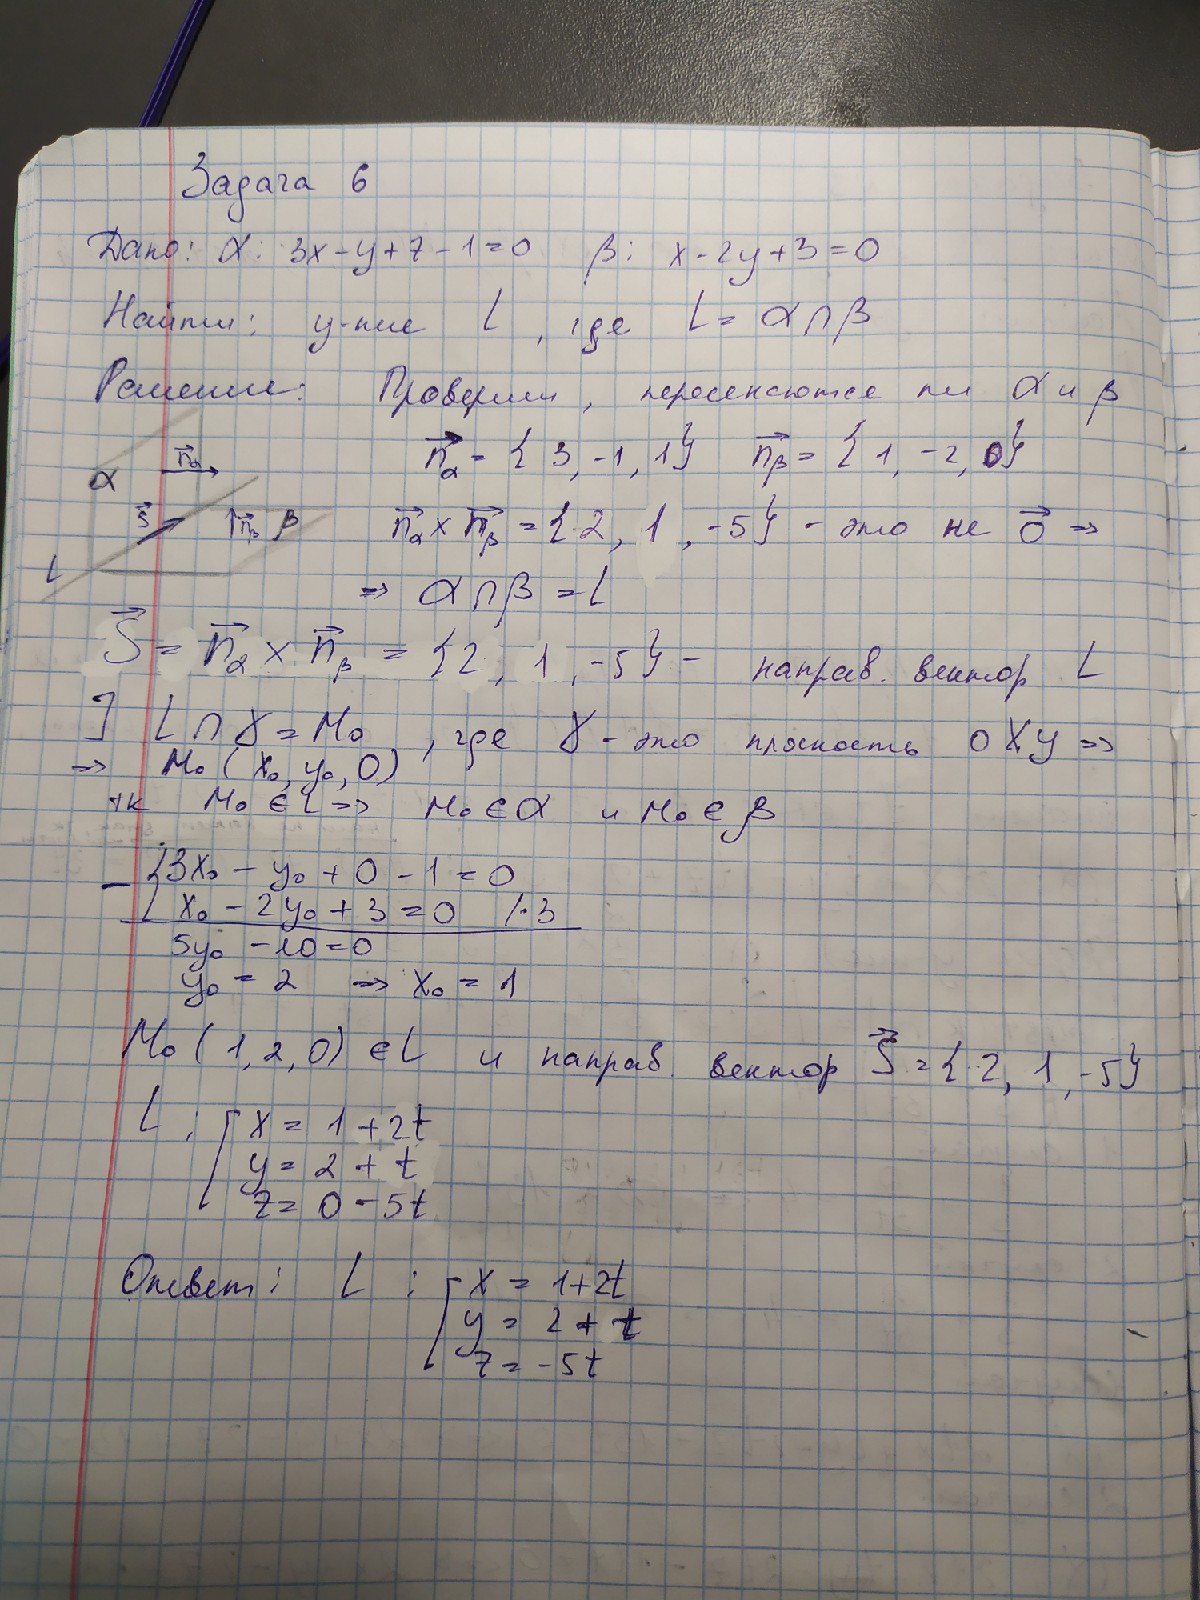 Задача 6
Дано: α: 3x-y+z-1=0 β: x-2y+3=0
Найти: у-ние L, где L=α∩β
Решение: Проверим, пересекаются ли α и β
n⃗α = {3, -1, 1} n⃗β = {1, -2, 0}
α n⃗α
n⃗α × n⃗β = {2, 1, -5} - это не 0⃗ =>
s⃗ n⃗β β
L
=> α∩β = L
S⃗ = n⃗α × n⃗β = {2, 1, -5} - направ. вектор L
] L∩γ = M₀, где γ - это плоскость OXY =>
=> M₀(x₀, y₀, 0)
тк M₀ ∈ L => M₀ ∈ α и M₀ ∈ β
- { 3x₀ - y₀ + 0 - 1 = 0
x₀ - 2y₀ + 3 = 0 /·3
5y₀ - 10 = 0
y₀ = 2 => x₀ = 1
M₀(1, 2, 0) ∈ L и направ. вектор S⃗ = {2, 1, -5}
L: { x = 1 + 2t
y = 2 + t
z = 0 - 5t
Ответ: L : { x = 1+2t
y = 2 + t
z = -5t